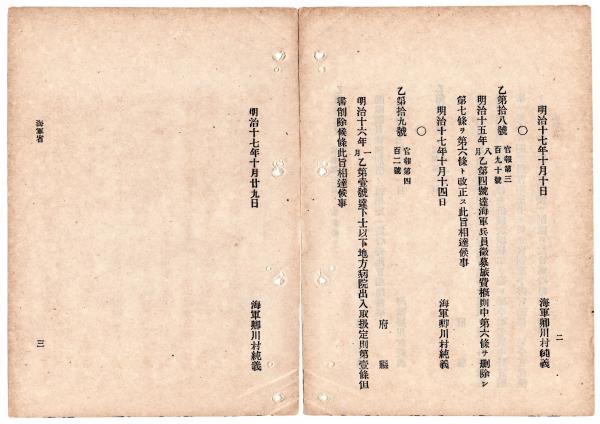 明治十七年十月十日
海軍卿川村純義
二
○
乙第拾八號 官報第三百九十號
明治十五年八月乙第四號達海軍兵員徵募旅費概則中第六條ヲ刪除シ
第七條ヲ第六條ト改正ス此旨相達候事
明治十七年十月十四日
海軍卿川村純義
○
乙第拾九號 官報第四百二號
府縣
明治十六年一月乙第壹號達下士以下地方病院出入取扱定則第壹條但
書刪除候條此旨相達候事
明治十七年十月廿九日
海軍卿川村純義
海軍省
三